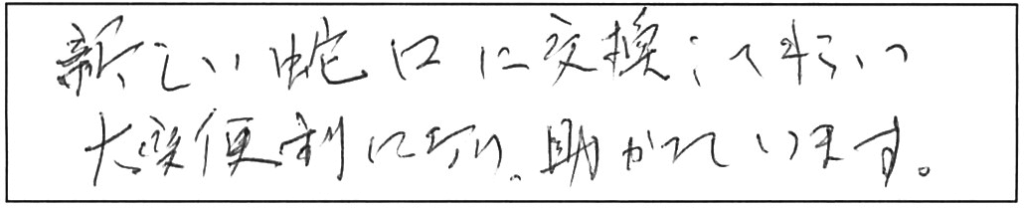 新しい蛇口に交換して頂いて
大変便利になり、助かっています。